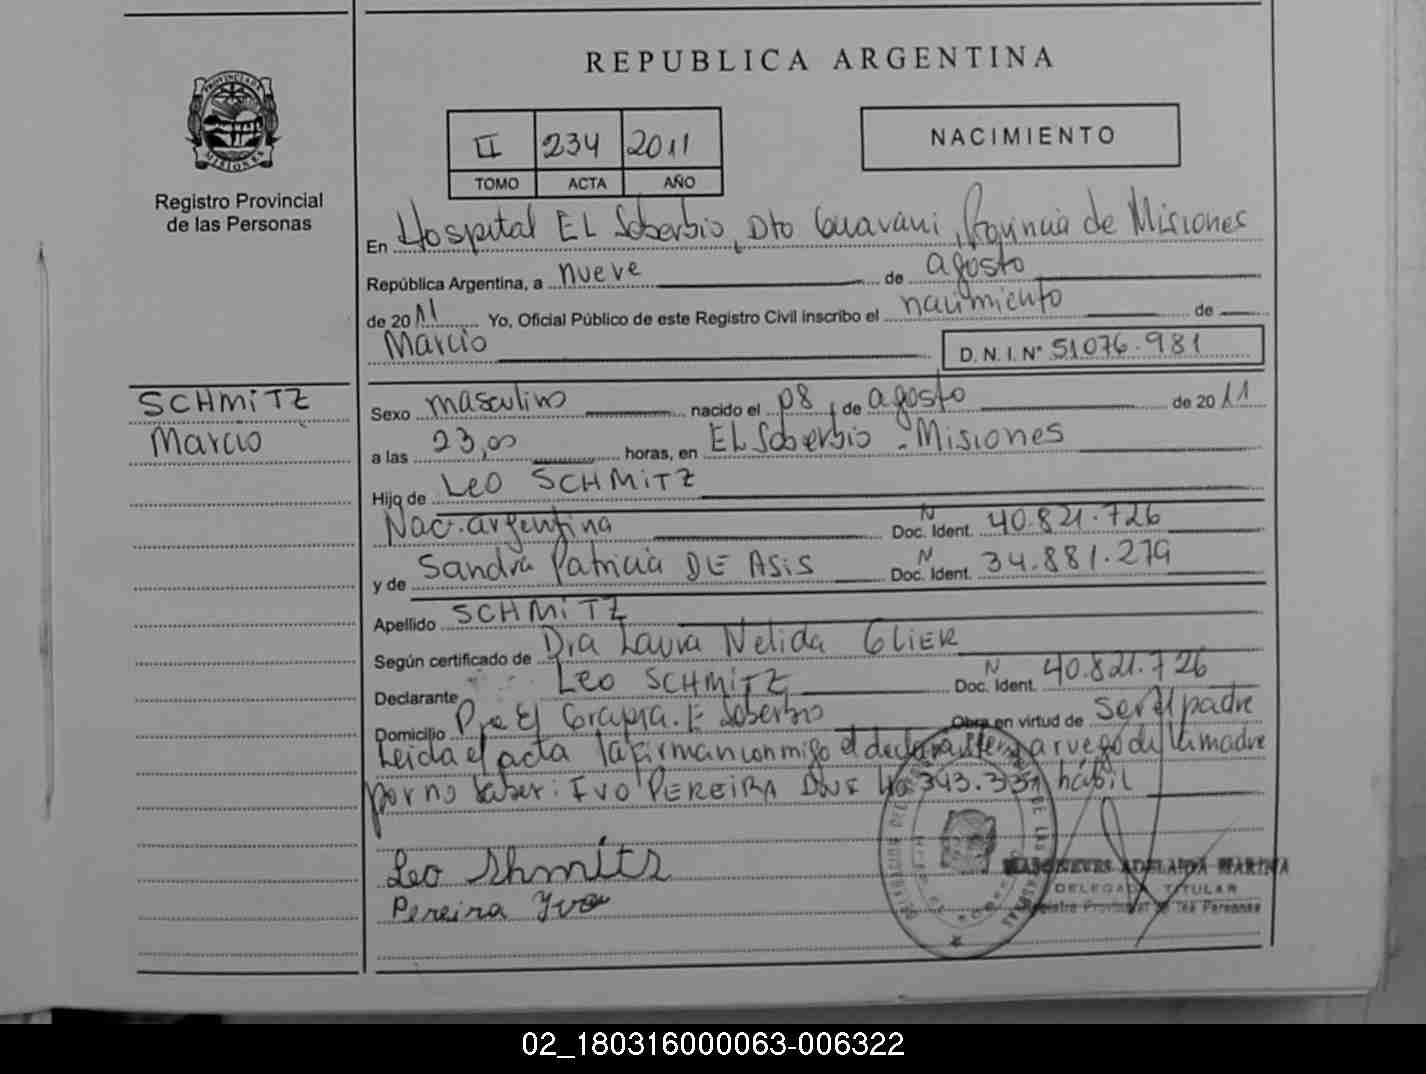 REPUBLICA ARGENTINA
PROVINCIA DE
MISIONES
Registro Provincial
de las Personas
II 234 2011
TOMO ACTA AÑO
NACIMIENTO
En Hospital EL Soberbio, Dto Guarani, Provincia de Misiones
República Argentina, a nueve de agosto
de 2011 Yo, Oficial Público de este Registro Civil inscribo el nacimiento de
Marcio D.N.I. Nº 51076.981
SCHMITZ
Marcio
Sexo masculino nacido el 08 de agosto de 2011
a las 23,00 horas, en EL Soberbio - Misiones
Hijo de Leo SCHMITZ
Nac. argentina N Doc. Ident. 40.821.726
y de Sandra Patricia DE ASIS N Doc. Ident. 34.881.279
Apellido SCHMITZ
Según certificado de Dra Laura Nelida GLIER
Declarante Leo SCHMITZ N Doc. Ident. 40.821.726
Domicilio Soberbio Obra en virtud de ser el padre
Leida el acta la firman conmigo el declarante y a ruego de la madre
por no saber: IVO PEREIRA 343.331 hábil
Leo Shmitz
Pereira Yvo
ADELAIDA MARINA
DELEGADA TITULAR
Registro Provincial de las Personas
02_180316000063-006322